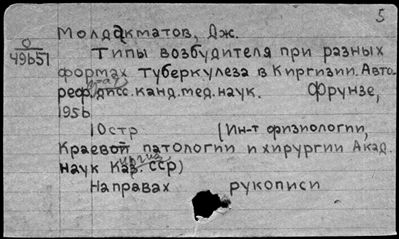 5
Молдакматов, Дж.
0
49651
Типы возбудителя при разных
формах туберкулеза в Киргизии. Авто-
реф. дисс. канд. мед. наук. Фрунзе,
1956
10стр (Ин-т физиологии,
Краевой патологии и хирургии Акад.
наук Каз. ССР)
На правах рукописи